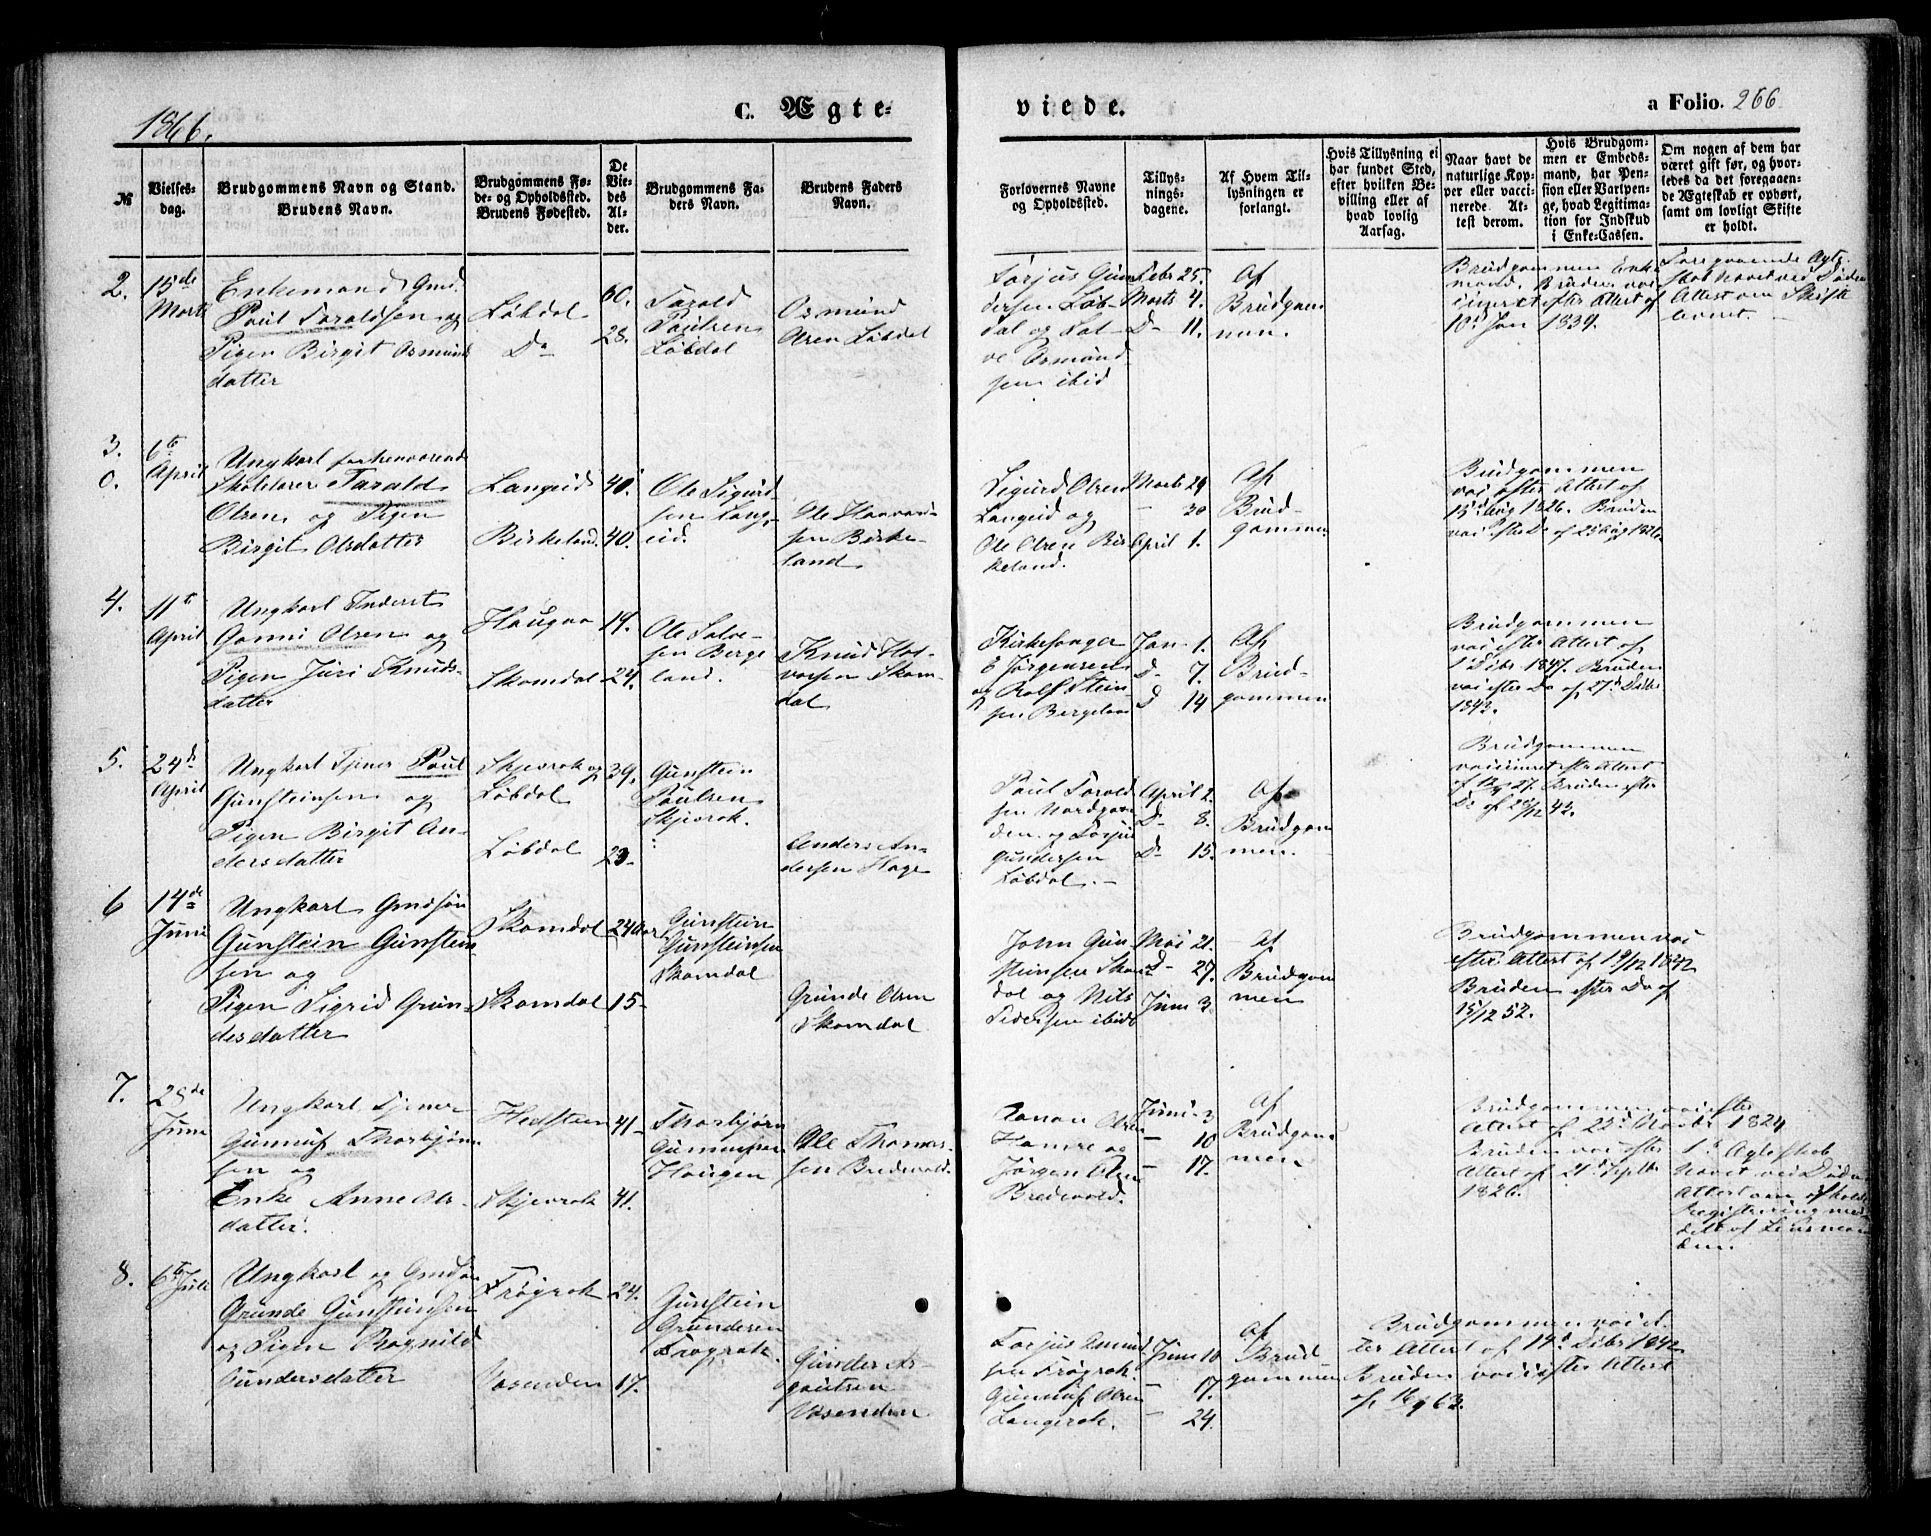 1866.
C. Ægteviede.
a Folio. 266
№
Vielses-
dag.
Brudgommens Navn og Stand.
Brudens Navn.
Brudgommens Fø-
de- og Opholdssted.
Brudens Fødested.
De
Vie-
des
Al-
der.
Brudgommens Fa-
ders Navn.
Brudens Faders
Navn.
Forlovernes Navne
og Opholdssted.
Tillys-
nings-
dagene.
Af Hvem Til-
lysningen er
forlangt.
Hvis Tillysning ei
har fundet Sted,
efter hvilken Be-
villing eller af
hvad lovlig
Aarsag.
Naar havt de
naturlige Kop-
per eller vacci-
nerede. At-
test derom.
Hvis Brudgom-
men er Embeds-
mand, har Pen-
sion eller Vartpen-
ge, hvad Legitima-
tion for Indskud
i Enke-Cassen.
Om nogen af dem har
været gift før, og hvor-
ledes da det foregaaen-
de Ægteskab er ophørt,
samt om lovligt Skifte
er holdt.
2.
15de
Marts
Enkemand Gmd.
Paul Taraldsen og
Pigen Birgit Osmunds
datter
Løbdal
Do
60.
28.
Tarald
Paulsen
Løbdal
Osmund
Aren Løbdal
Torjus Gun
dersen Løb
dal og Sal
ve Osmund
sen ibid
Febr 25.
Marts 4.
Do 11.
Af
Brudgom
men.
Brudgommen Enke
mand. Bruden vac
cineret efter Attest af
10d Jan 1839.
Foregaaende Ægte
skab hævet ved Døden
Attest om Skifte
leveret.
3.
0.
6te
April
Ungkarl forhenværend
Skolelærer Tarald
Olsen og Pigen
Birgit Olsdatter
Langeid
Birkeland.
40.
40.
Ole Sigurd
sen Lang
eid.
Ole Haavar
sen Birke-
land
Sigurd Olsen
Langeid og
Ole Olsen Bir
keland.
Marts 29
- 30
April 1.
Af
Brud-
gommen
Brudgommen
vac efter Attest af
15d Aug 1826. Bruden
vac efter Do af 25 Aug 1826.
4.
11te
April
Ungkarl Inderst
Gonni Olsen og
Pigen Juri Knuds-
datter
Haugaa
Skomdal
19.
24.
Ole Salve-
sen Berge
land.
Knud Hav-
vorsen Skom
dal
Kirkesanger
E Jørgensen
og Rolf Stein
sen Bergeland
Jan. 1.
D- 7.
D 14
Af
Brud-
gommen
Brudgommen
vac efter Attest af
1 Debr 1847. Bruden
vac efter Do af 27d Debr
1842.
5.
24d
April
Ungkarl Tjener Paul
Gunsteinsen og
Pigen Birgit An-
dersdatter
Skjevrak og
Løbdal
Løbdal
39.
23-
Gunstein
Paulsen
Skjevrak.
Anders An-
dersen Hage
Paul Tarald
sen Nordgar
den og Torjus
Gundersen
Løbdal.
April 2.
D- 8.
D- 15.
Af
Brudgom
men.
Brudgommen
vaccineret efter Attest
af 27. Bruden efter
Do af 42.
6
14de
Juni
Ungkarl Gmdsøn
Gunstein Gunstein
sen og
Pigen Sigrid Grun-
desdatter
Skomdal
Skomdal
24 Aar
15-
Gunstein
Gunsteinsen
Skomdal
Grunde Olsen
Skomdal
John Gun
steinsen Skom
dal og Nils
Pedersen ibid
Mai 21.
D- 27.
Juni 3
Af
Brudgom
men
Brudgommen vac
efter Attest af 19/12 1842
Bruden efter Do af
15/12 52.
7.
28de
Juni
Ungkarl Tjener
Gunnuf Thorbjørn
sen og
Enke Anne Ols-
datter.
Hedsteen
Skjevrak
41-
41.
Thorbjørn
Gunnufsen
Haugen
Ole Thomas-
sen Bredvold.
Hamre og
Jørgen Olsen
Bredevold.
Juni 3
- 10
- 17.
af
Brudgom
men
Brudgommen vac efter
Attest af 22d Novbr 1824
Bruden vac efter
Attest af 21d Septbr
1826.
1d Ægteskab
hævet ved Døden
Attest om afholdt
Registrering med-
delt af Lensman
den.
8.
6te Juli
Ungkarl og Gmdsøn
Grunde Gunsteinsen
og Pigen Ragnild
Gundersdatter
Frøyrak
Vasenden
24.
17.
Gunstein
Grundesen
Frøyrak.
Gunder As-
gautsen
Vasenden
Torjus Aamund
sen Frøyrak.
Gunnuf Olsen
Langerak.
Juni 10
- 17.
- 24.
Af
Brud-
gommen
Brudgommen vac ef
ter Attest af 14d Debr 1842
Bruden vac efter Attest
af 16/9 63.